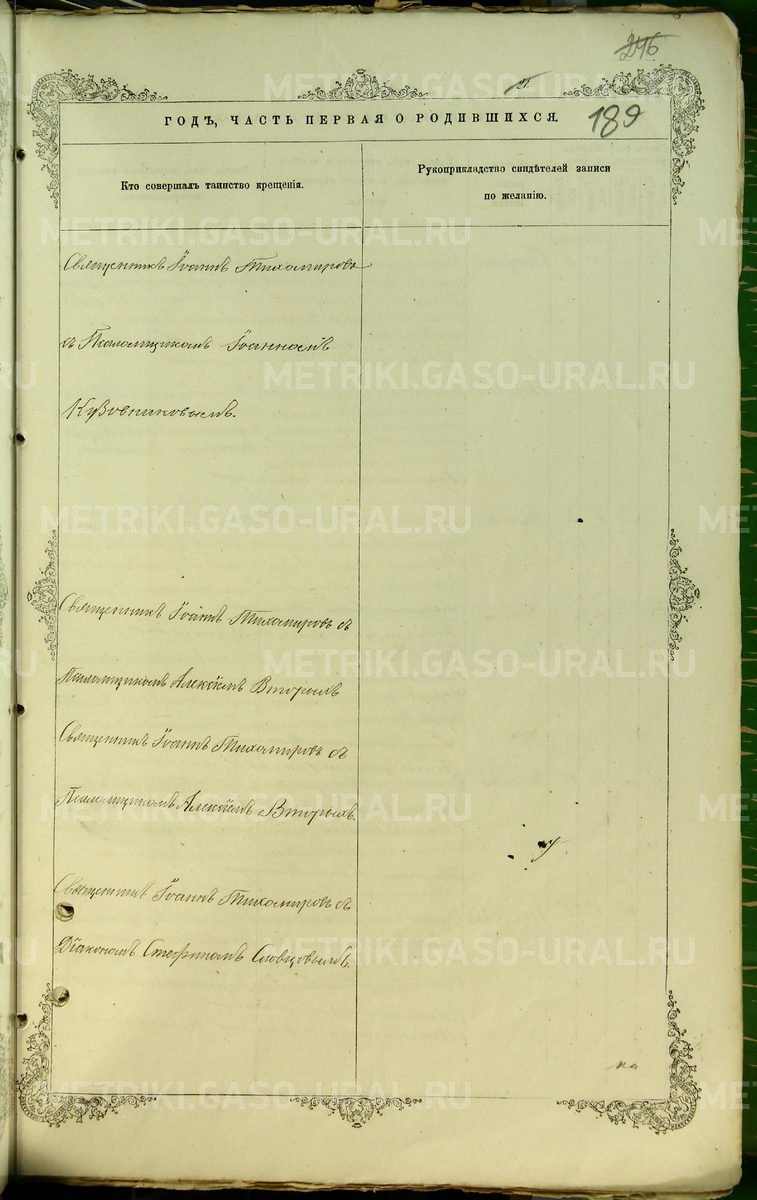 246
189
ГОДЪ, ЧАСТЬ ПЕРВАЯ О РОДИВШИХСЯ.
Кто совершалъ таинство крещенія.
Рукоприкладство свидѣтелей записи
по желанію.
Священникъ Іоаннъ Тихомировъ
съ Псаломщикомъ Іоанномъ
Кузовниковымъ.
Священникъ Іоаннъ Тихомировъ съ
Псаломщикомъ Алексѣемъ Вторыхъ
Священникъ Іоаннъ Тихомировъ съ
Псаломщикомъ Алексѣемъ Вторыхъ.
Священникъ Іоаннъ Тихомировъ съ
Діакономъ Стефаномъ Словцовымъ.
METRIKI.GASO-URAL.RU